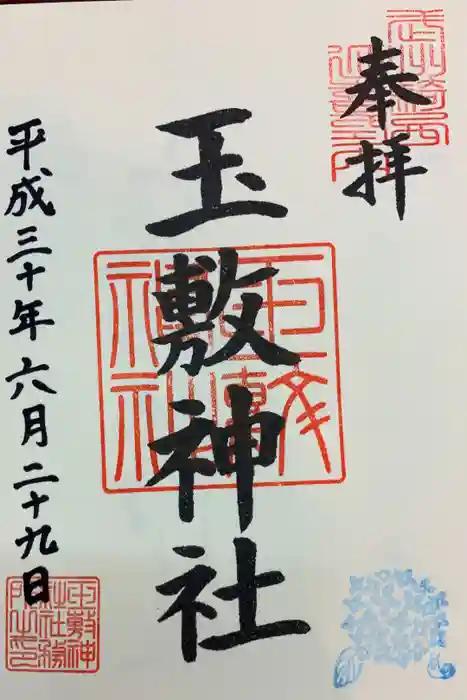 奉拝
玉敷神社
平成三十年六月二十九日
玉敷神社
玉敷神社社務所之印